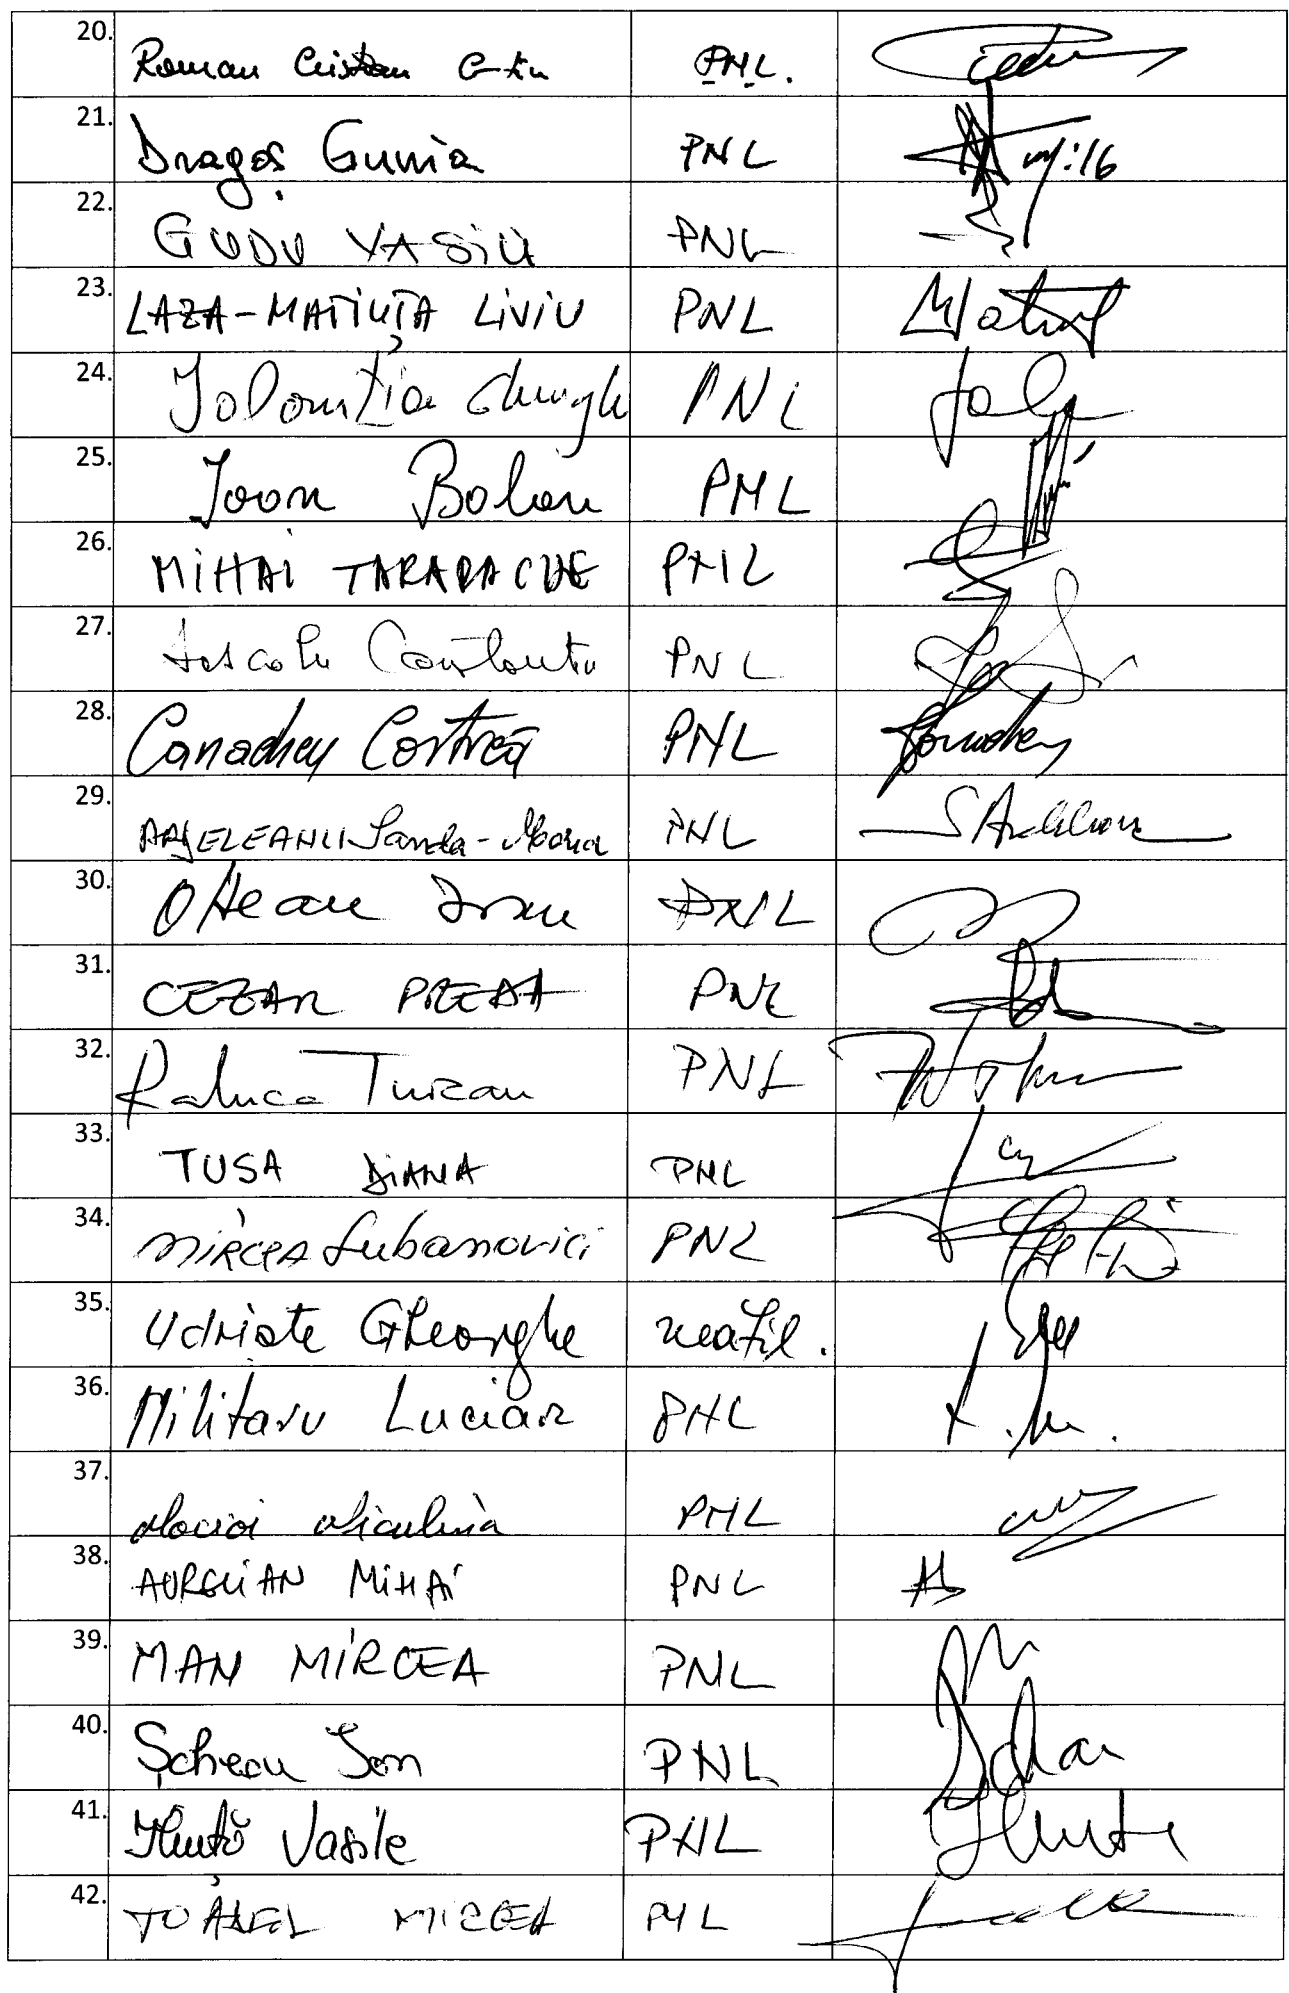 20. Roman Cristan C-tin PNL.
21. Dragoș Gunia PNL
22. GUDU VASILE PNL
23. LAZA-MATIUȚA LIVIU PNL
24. Ialomițianu PNL
25. Ioan Balan PNL
26. MIHAI TARARACHE PNL
27. PNL
28. Canacheu Costică PNL
29. ARGELEANU Sanda-Maria PNL
30. Oltean Ioan PNL
31. CEZAR PREDA PNL
32. Raluca Turcan PNL
33. TUSA DIANA PNL
34. MIRCEA Lubanovici PNL
35. Udriște Gheorghe neafil.
36. Militaru Lucian PNL
37. PNL
38. AURELIAN MIHAI PNL
39. MAN MIRCEA PNL
40. Șcheau Ion PNL
41. Iliuță Vasile PNL
42. TOADER MIRCEA PNL